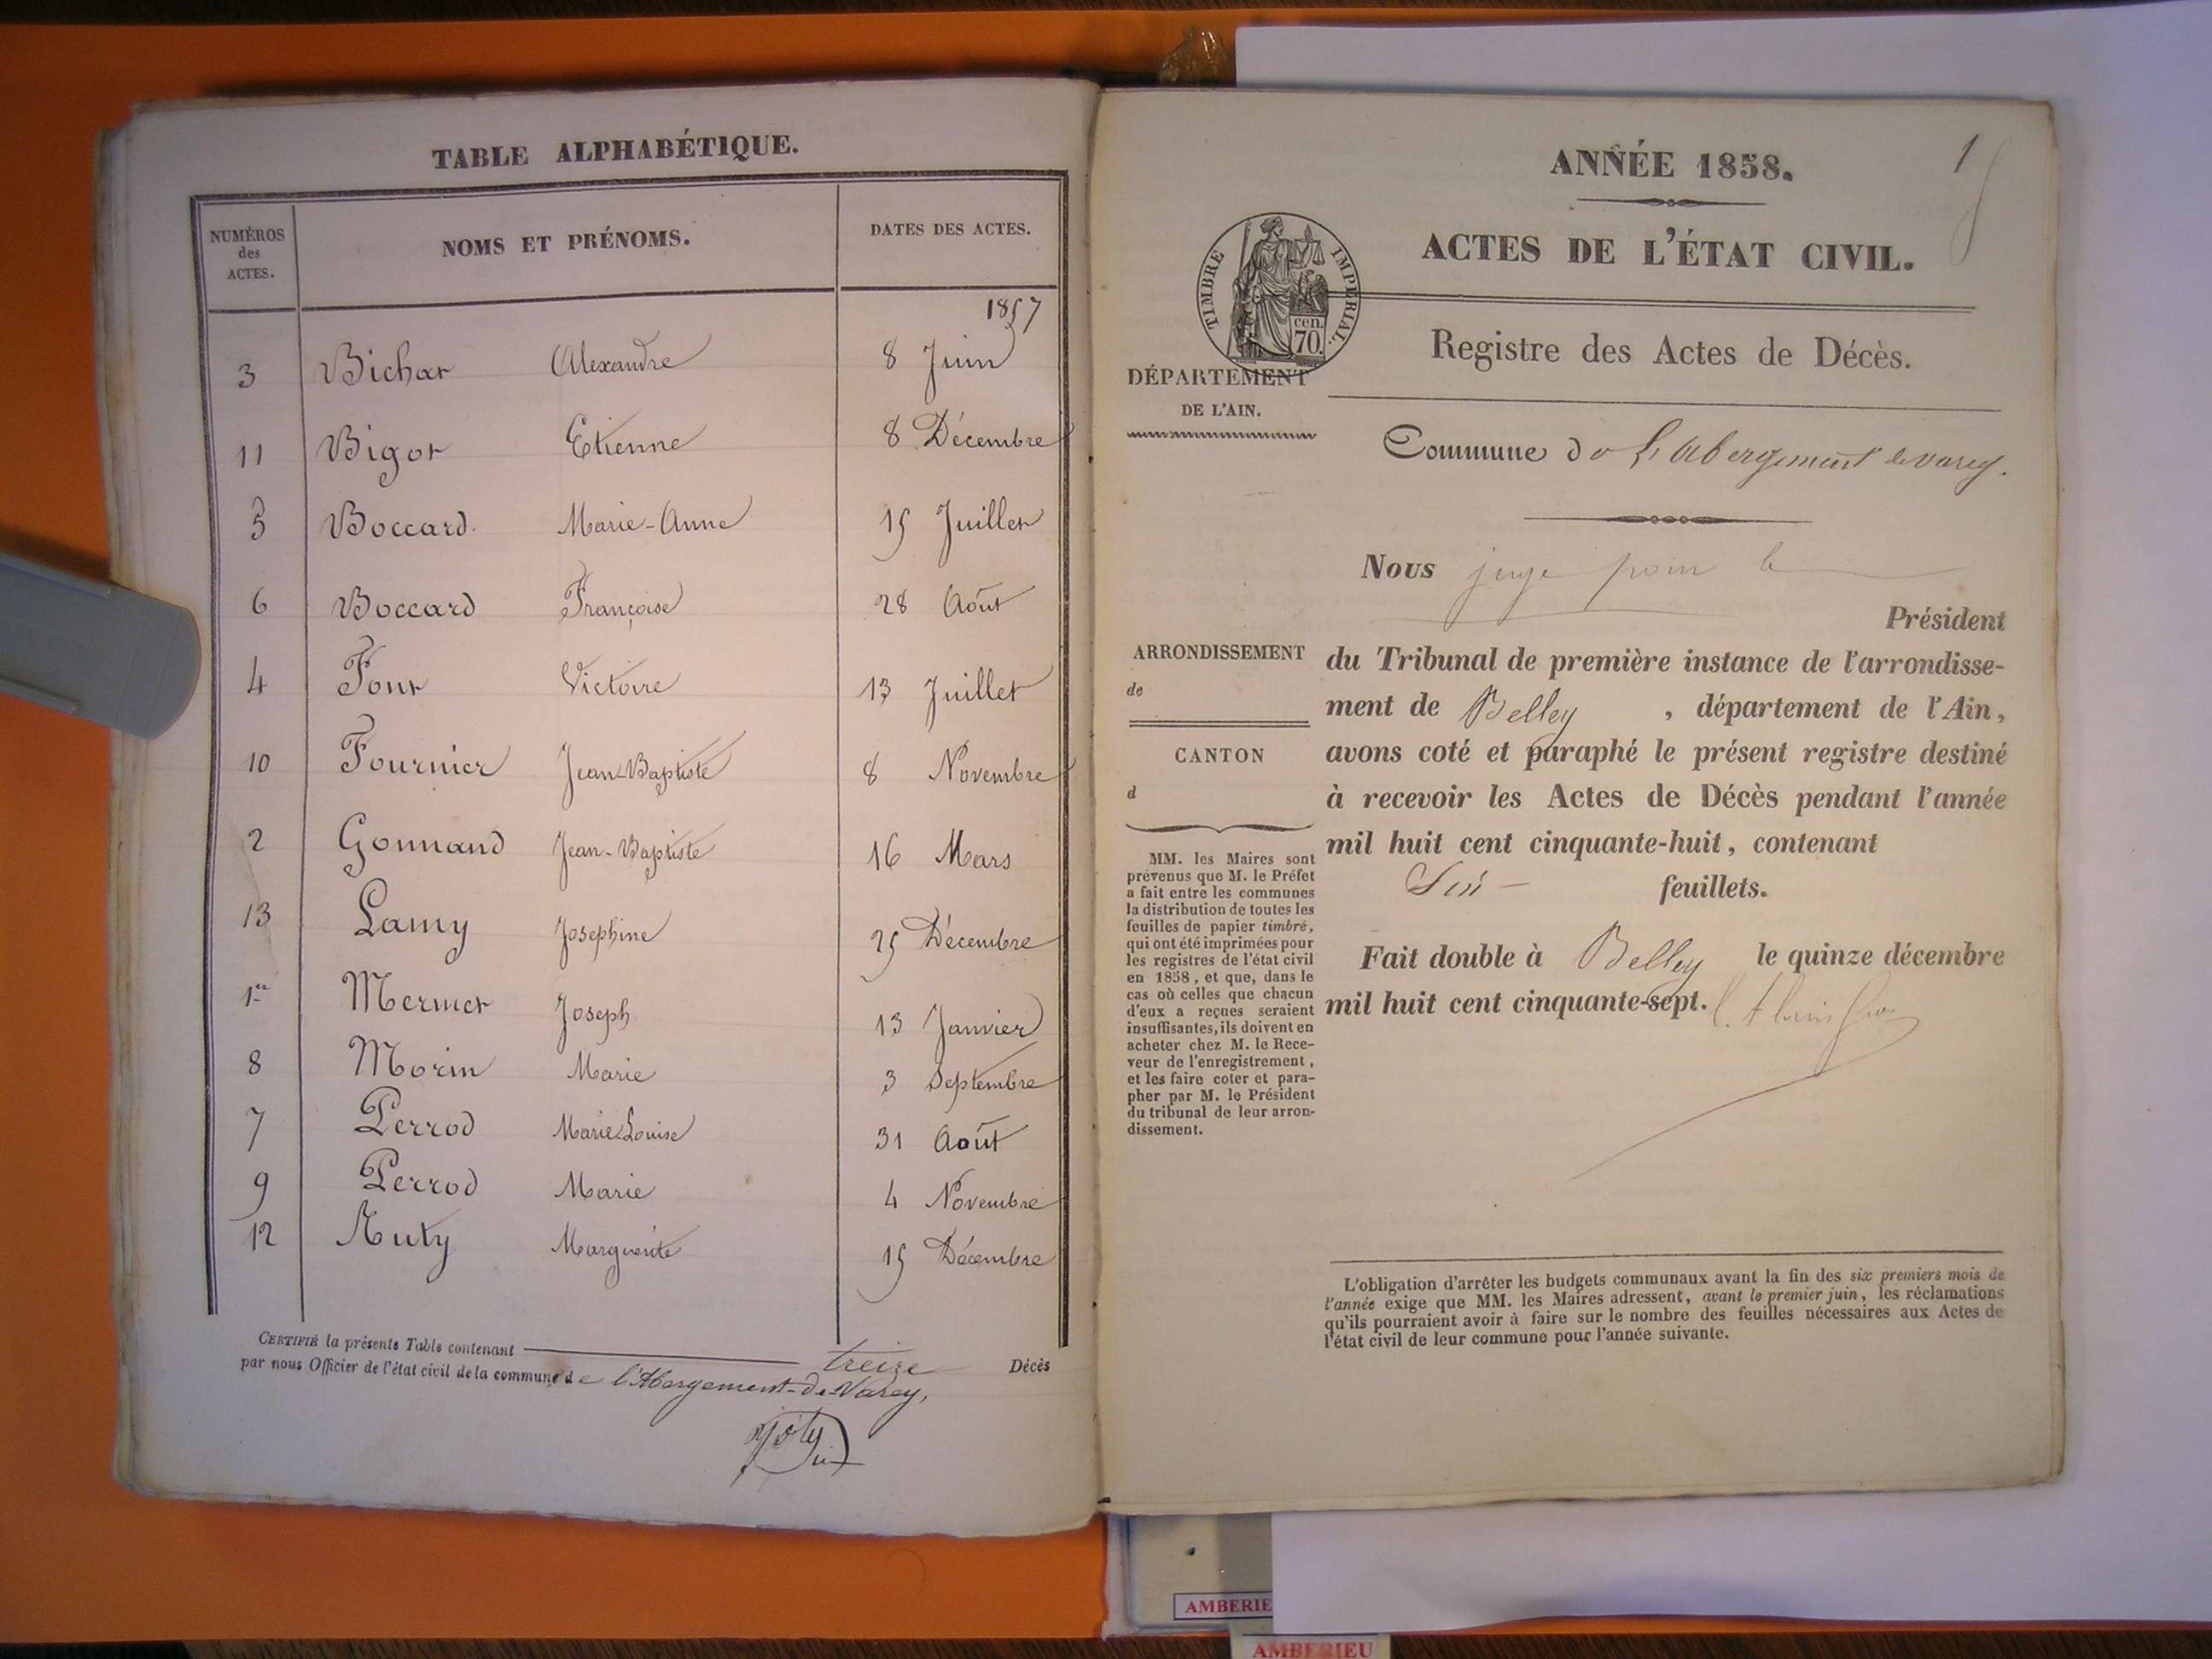 TABLE ALPHABÉTIQUE.
NUMÉROS des ACTES. NOMS ET PRÉNOMS. DATES DES ACTES.
1857
3 Bichat Alexandre 8 Juin
11 Bigot Etienne 8 Décembre
5 Boccard Marie-Anne 15 Juillet
6 Boccard Françoise 28 Août
4 Font Victoire 13 Juillet
10 Fournier Jean-Baptiste 8 Novembre
2 Gonnand Jean-Baptiste 16 Mars
13 Lamy Josephine 25 Décembre
1er Mermet Joseph 13 Janvier
8 Morin Marie 3 Septembre
7 Perrod Marie Louise 31 Août
9 Perrod Marie 4 Novembre
12 Ruty Marguerite 15 Décembre
CERTIFIÉ la présente Table contenant treize Décès
par nous Officier de l'état civil de la commune de l'Abergement-de-Varey,
ANNÉE 1858.
1
ACTES DE L'ÉTAT CIVIL.
TIMBRE IMPÉRIAL.
cen.
70.
Registre des Actes de Décès.
DÉPARTEMENT
DE L'AIN.
Commune de L'Abergement de varey.
Nous juge pour le
Président
ARRONDISSEMENT
de
CANTON
d
du Tribunal de première instance de l'arrondisse-
ment de Belley , département de l'Ain,
avons coté et paraphé le présent registre destiné
à recevoir les Actes de Décès pendant l'année
mil huit cent cinquante-huit, contenant
feuillets.
Fait double à Belley le quinze décembre
mil huit cent cinquante-sept.
MM. les Maires sont
prévenus que M. le Préfet
a fait entre les communes
la distribution de toutes les
feuilles de papier timbré,
qui ont été imprimées pour
les registres de l'état civil
en 1858, et que, dans le
cas où celles que chacun
d'eux a reçues seraient
insuffisantes, ils doivent en
acheter chez M. le Rece-
veur de l'enregistrement,
et les faire coter et para-
pher par M. le Président
du tribunal de leur arron-
dissement.
L'obligation d'arrêter les budgets communaux avant la fin des six premiers mois de
l'année exige que MM. les Maires adressent, avant le premier juin, les réclamations
qu'ils pourraient avoir à faire sur le nombre des feuilles nécessaires aux Actes de
l'état civil de leur commune pour l'année suivante.
AMBERIE
AMBERIEU